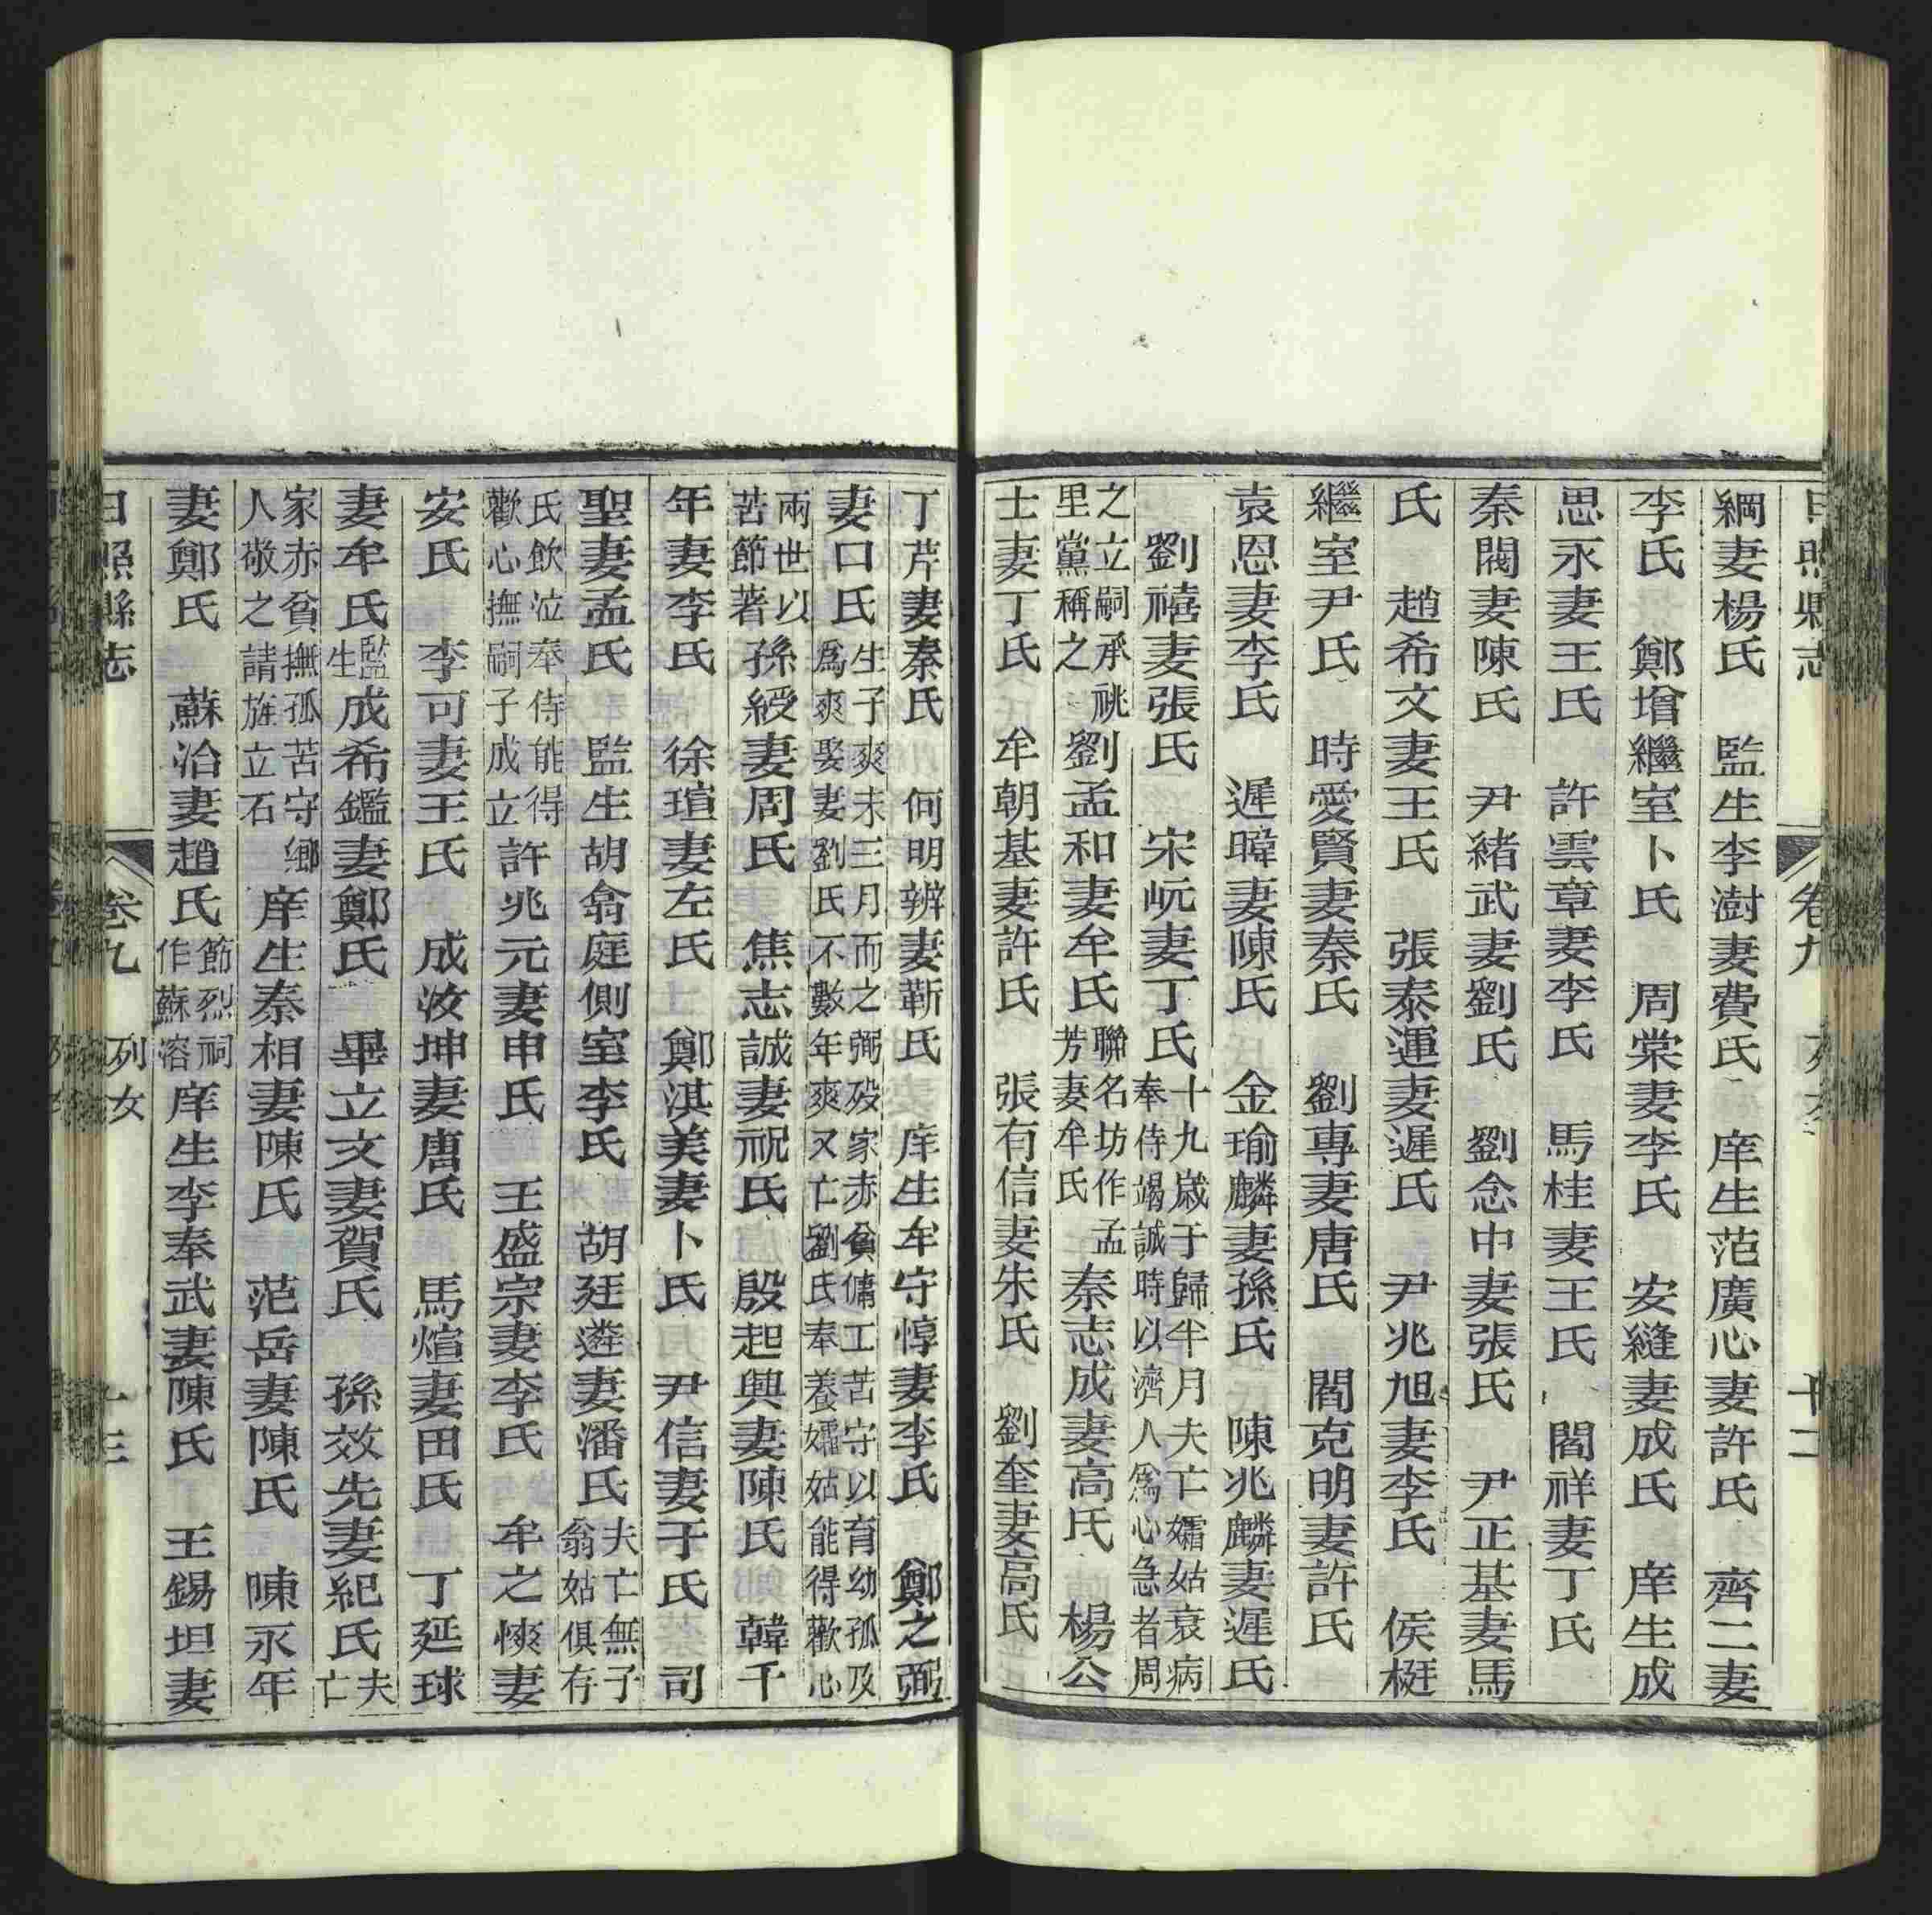 日照縣志 卷九 列女 十二
綱妻楊氏 監生李澍妻費氏 庠生范廣心妻許氏 齊二妻
李氏 鄭墖繼室卜氏 周棠妻李氏 安縫妻成氏 庠生成
思永妻王氏 許雲章妻李氏 馬桂妻王氏 閻祥妻丁氏
秦閣妻陳氏 尹緒武妻劉氏 劉念中妻張氏 尹正基妻馬
氏 趙希文妻王氏 張泰運妻遲氏 尹兆旭妻李氏 侯梃
繼室尹氏 時愛賢妻秦氏 劉專妻唐氏 閻克明妻許氏
袁恩妻李氏 遲暐妻陳氏 金瑜麟妻孫氏 陳兆麟妻遲氏
劉禧妻張氏 宋岏妻丁氏 十九歲于歸半月夫亡孀姑衰病奉侍竭誠時以濟人爲心急者周
之立嗣承祧里黨稱之 劉孟和妻牟氏 聯名坊作孟芳妻牟氏 秦志成妻高氏 楊公
士妻丁氏 牟朝基妻許氏 張有信妻朱氏 劉奎妻高氏
丁芹妻秦氏 何明辨妻靳氏 庠生牟守惇妻李氏 鄭之弼
妻口氏 生子爽未三月而之弼歿家赤貧傭工苦守以育幼孤及爲爽娶妻劉氏不數年爽又亡劉氏奉養孀姑能得歡心
兩世以苦節著 孫綬妻周氏 焦志誠妻祝氏 殷起興妻陳氏 韓千
年妻李氏 徐瑄妻左氏 鄭淇美妻卜氏 尹信妻于氏 司
聖妻孟氏 監生胡翕庭側室李氏 胡廷遴妻潘氏 夫亡無子翁姑俱存
氏飲泣奉侍能得歡心撫嗣子成立 許兆元妻申氏 王盛宗妻李氏 牟之懊妻
安氏 李可妻王氏 成汝坤妻唐氏 馬煊妻田氏 丁延球
妻牟氏 監生成希鑑妻鄭氏 畢立文妻賀氏 孫效先妻紀氏 夫亡
家赤貧撫孤苦守鄉人敬之請旌立石 庠生秦相妻陳氏 范岳妻陳氏 陳永年
妻鄭氏 蘇治妻趙氏 節烈祠作蘇溶 庠生李奉武妻陳氏 王錫坦妻
日照縣志 卷九 列女 十三